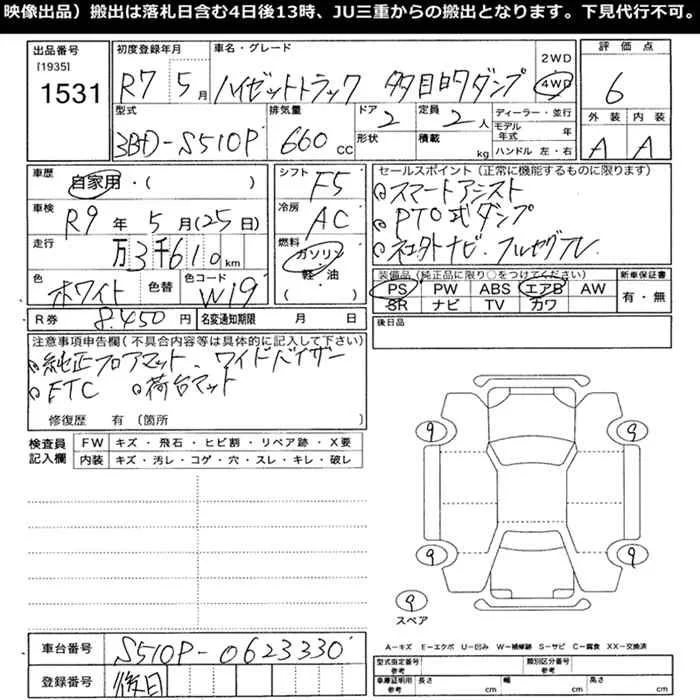 映像出品）搬出は落札日含む4日後13時、JU三重からの搬出となります。下見代行不可。
出品番号 [1935] 1531
初度登録年月 R7 5月
車名・グレード ハイゼットトラック 多目的ダンプ
2WD 4WD
評価点 6
外装 A 内装 A
型式 3BD-S510P
排気量 660 CC
ドア 2 形状
定員 2人 積載 kg
ディーラー・並行
モデル年式 年
ハンドル 左・右
車歴 自家用・( )
車検 R9年5月(25日)
走行 万3千610km
色 ホワイト 色替 色コード W19
R券 8.450円 名変通知期限 月 日
シフト F5
冷房 AC
燃料 ガソリン 軽・油 ( )
セールスポイント(正常に機能するものに限ります)
スマートアシスト
PTO式ダンプ
フルセグTV
装備品(純正品に限り○をつけてください)
PS PW ABS エアB AW
SR ナビ TV カワ
新車保証書 有・無
後日品
注意事項申告欄(不具合内容等は具体的に記入して下さい)
純正フロアマット、ワイドバイザー
ETC 荷台マット
修復歴 有 (箇所 )
検査員記入欄
FW キズ・飛石・ヒビ割・リペア跡・X要
内装 キズ・汚レ・コゲ・穴・スレ・キレ・破レ
9 9
9 9
9
スペア
A－キズ E－エクボ U－凹み W－補修跡 S－サビ C－腐食 XX－交換済
車台番号 S510P-0623330
登録番号 後日
型式指定番号 参考 類別区分番号 参考
車庫証明用 参考 長さ cm 幅 cm 高さ cm